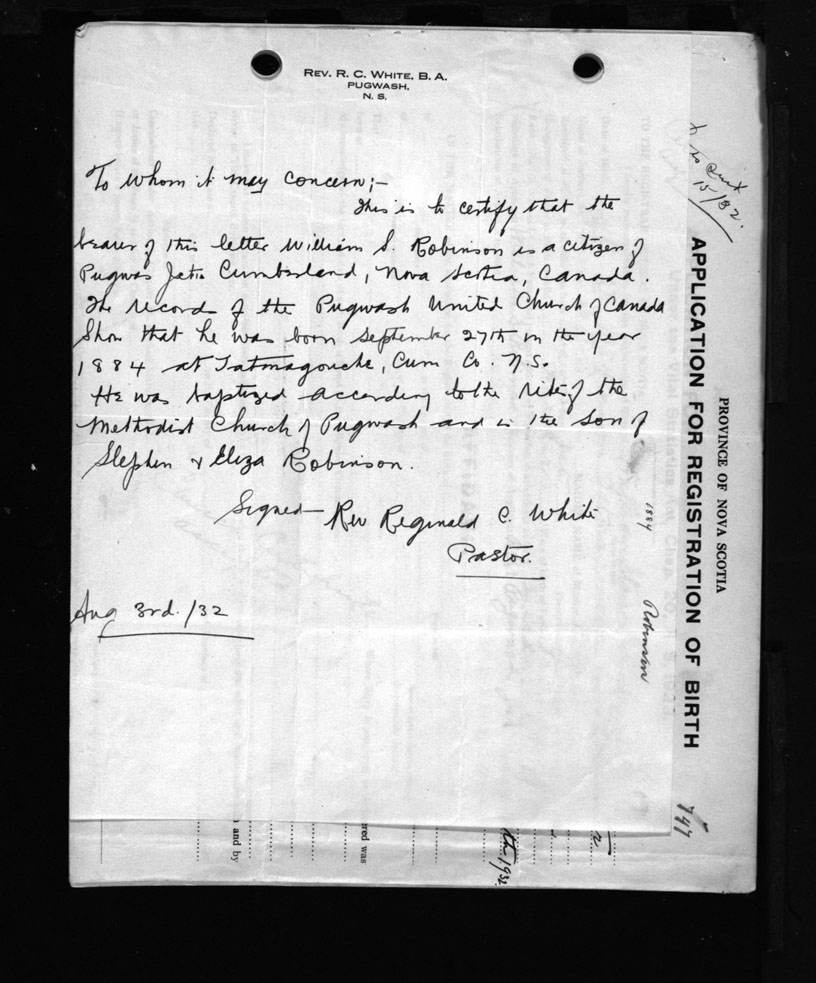 REV. R. C. WHITE, B. A.
PUGWASH,
N. S.
To whom it may concern;-
This is to certify that the
bearer of this letter William S. Robinson is a citizen of
Pugwas Jctn Cumberland, Nova Scotia, Canada.
The records of the Pugwash United Church of Canada
Show that he was born September 27th in the year
1884 at Tatmagouche, Cum Co. N.S.
He was baptized according to the rite of the
Methodist Church of Pugwash and is the son of
Stephen & Eliza Robinson.
Signed- Rev Reginald C. White
Pastor.
Aug 3rd./32
1884 Robinson
APPLICATION FOR REGISTRATION OF BIRTH
PROVINCE OF NOVA SCOTIA
15/32.
747
and by
ered was
th 1932